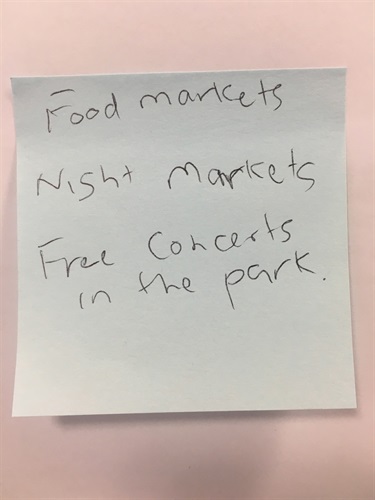 Food markets
Night Markets
Free Concerts
in the park.